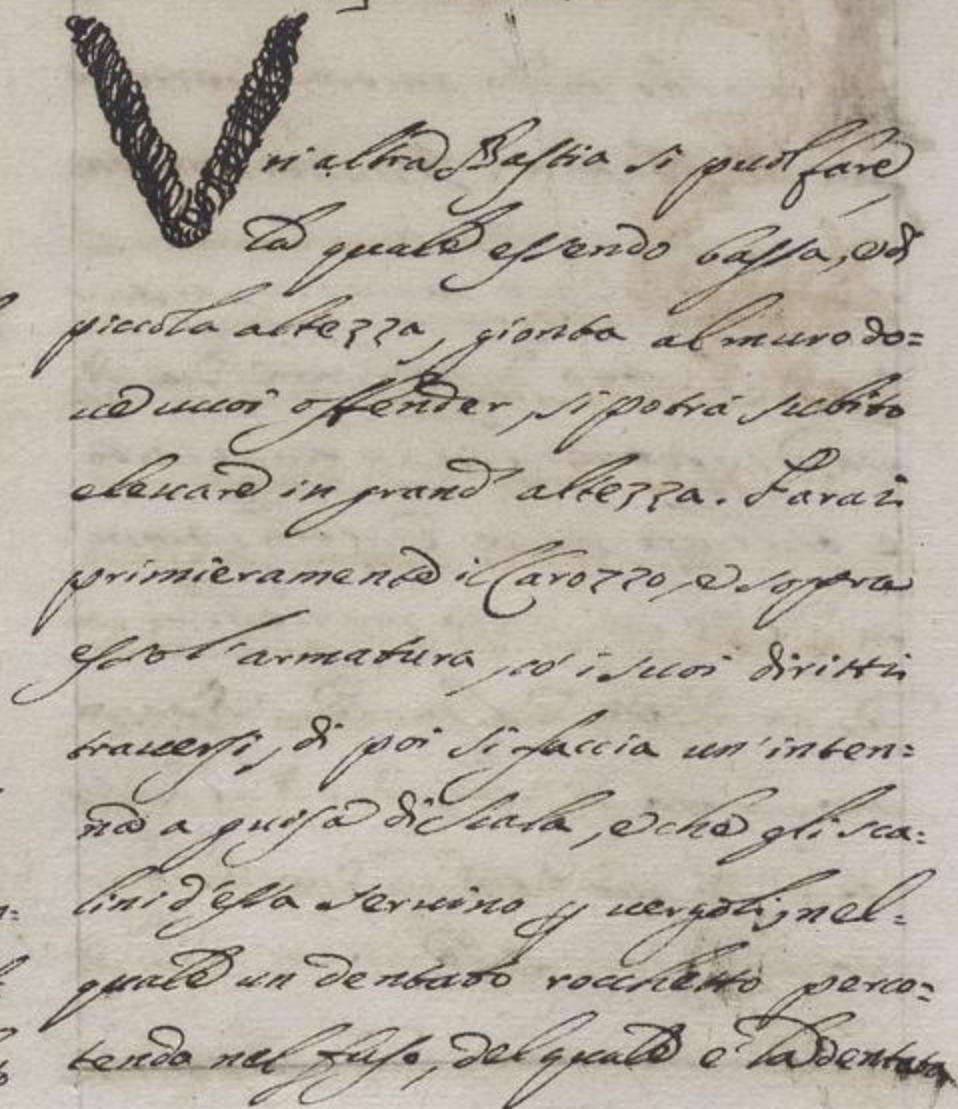 Vn'altra Bastia si puol fare
la quale essendo bassa, e di
piccola altezza, gionta al muro do=
ue uuoi offender, si potrà subito
eleuare in grand' altezza. Farai
primieramente il Carozzo, e sopra
esso l'armatura, co' i suoi diritti
trauersi, di poi si faccia un'inten=
na a guisa di scala, e che gli sca=
lini d'essa seruino p uergoli, nel=
quale un dentato rocchetto perco=
tendo nel fuso, del quale è la dentata